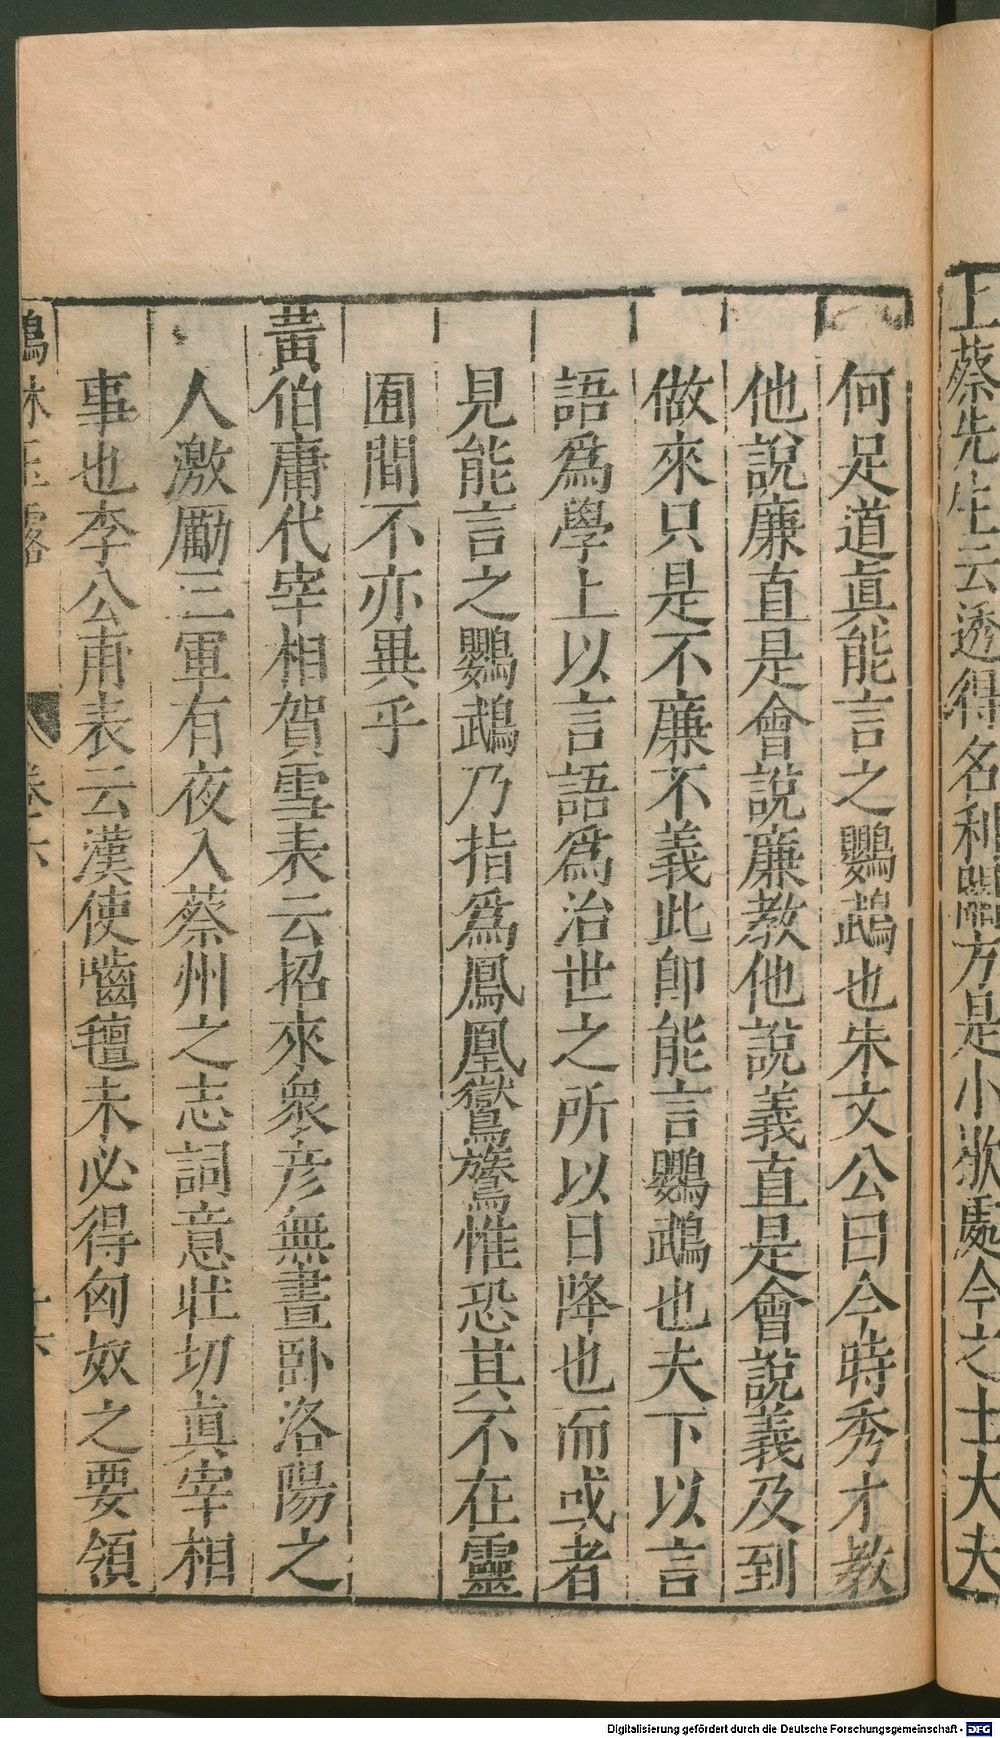 上蔡先生云透得名利關方是小歇處今之士大夫
何足道眞能言之鸚鵡也朱文公曰今時秀才教
他說廉直是會說廉教他說義直是會說義及到
做來只是不廉不義此卽能言鸚鵡也夫下以言
語爲學上以言語爲治世之所以日降也而或者
見能言之鸚鵡乃指爲鳳凰鸑鷟惟恐其不在靈
囿間不亦異乎
黃伯庸代宰相賀雪表云招來衆彥無晝臥洛陽之
人激勵三軍有夜入蔡州之志詞意壯切眞宰相
事也李公甫表云漢使嚙氊未必得匈奴之要領
鶴林玉露 卷六 十六
Digitalisierung gefördert durch die Deutsche Forschungsgemeinschaft - DFG